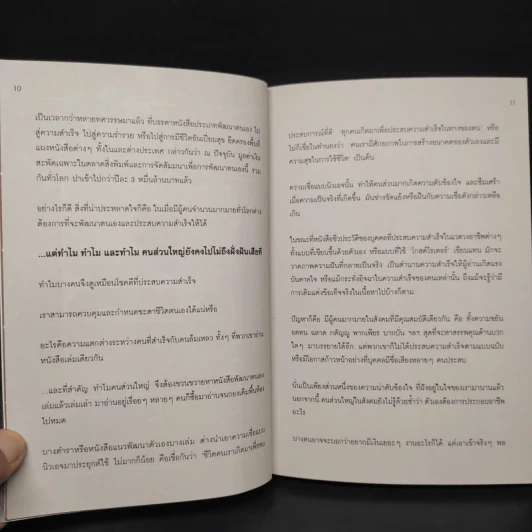 10
เป็นเวลากว่าหลายทศวรรษมาแล้ว ที่บรรดาหนังสือประเภทพัฒนาตนเอง ไป
สู่ความสำเร็จ ไปสู่ความร่ำรวย หรือไปสู่การมีชีวิตอันเปี่ยมสุข ยึดครองพื้นที่
แผงหนังสือต่างๆ ทั้งในและต่างประเทศ กล่าวกันว่า ณ ปัจจุบัน มูลค่าเงิน
สะพัดเฉพาะในตลาดสิ่งพิมพ์และการจัดสัมมนาเพื่อการพัฒนาตนเองนี้ รวม
กันทั่วโลก ปาเข้าไปกว่าปีละ 3 หมื่นล้านบาทแล้ว
อย่างไรก็ดี สิ่งที่น่าประหลาดใจก็คือ ในเมื่อมีผู้คนจำนวนมากมายทั่วโลกต่าง
ต้องการที่จะพัฒนาตนเองและประสบความสำเร็จให้ได้
...แต่ทำไม ทำไม และทำไม คนส่วนใหญ่ยังคงไปไม่ถึงฝั่งฝันเสียที
ทำไมบางคนจึงดูเหมือนโชคดีที่ประสบความสำเร็จ
เราสามารถควบคุมและกำหนดชะตาชีวิตตนเองได้แน่หรือ
อะไรคือความแตกต่างระหว่างคนที่สำเร็จกับคนล้มเหลว ทั้งๆ ที่พวกเขาอ่าน
หนังสือเล่มเดียวกัน
...และที่สำคัญ ทำไมคนส่วนใหญ่ จึงต้องขวนขวายหาหนังสือพัฒนาตนเอง
เล่มแล้วเล่มเล่า มาอ่านอยู่เรื่อยๆ หลายๆ คนก็ซื้อมาอ่านจนกองเต็มพื้นห้อง
ไปหมด
บางตำราหรือหนังสือแนวพัฒนาตัวเองบางเล่ม ต่างนำเอาความเชื่อแบบ
นิวเอจมาประยุกต์ใช้ ไม่มากก็น้อย คือเชื่อกันว่า 'ชีวิตคนเราเกิดมาเพื่อพบ
11
ประสบการณ์ที่ดี 'ทุกคนเกิดมาเพื่อประสบความสำเร็จในทางของตน' หรือ
ไม่ก็เชื่อในทำนองว่า 'คนเรามีศักยภาพในการสร้างอนาคตของตัวเองและมี
ความสุขในการใช้ชีวิต' เป็นต้น
ความเชื่อแบบนิวเอจนั้น ทำให้คนส่วนมากเกิดความคับข้องใจ และซึมเศร้า
เมื่อความเป็นจริงที่เกิดขึ้น มันช่างขัดแย้งหรือฝืนกับความเชื่อดังกล่าวเหลือ
เกิน
ในขณะที่หนังสือชีวประวัติของบุคคลที่ประสบความสำเร็จในแวดวงอาชีพต่างๆ
ทั้งแบบที่เขียนขึ้นด้วยตัวเอง หรือแบบที่ใช้ 'โกสต์ไรเตอร์' เขียนแทน มักจะ
วาดภาพความฝันที่กลายเป็นจริง เป็นตำนานความสำเร็จให้ผู้อ่านเกิดแรง
บันดาลใจ หรือแม้กระทั่งอิจฉาในความสำเร็จของคนเหล่านั้น ถึงแม้จะรู้ว่ามี
การเติมแต่งข้อเท็จจริงในเนื้อหาไปบ้างก็ตาม
ปัญหาก็คือ มีผู้คนมากมายในสังคมที่มีคุณสมบัติเดียวกัน คือ ทั้งความขยัน
อดทน ฉลาด กตัญญู พากเพียร บากบั่น ฯลฯ สุดที่จะหาสรรพคุณด้านบวก
ใดๆ มาบรรยายได้อีก แต่พวกเขาก็ไม่ได้ประสบความสำเร็จตามแบบฉบับ
หรือมีโอกาสก้าวหน้าอย่างที่บุคคลมีชื่อเสียงหลายๆ คนประสบ
นั่นเป็นเพียงส่วนหนึ่งของความน่าคับข้องใจ ที่มีอยู่ในใจของเรามานานแล้ว
นอกจากนี้ คนส่วนใหญ่ในสังคมยังไม่รู้ด้วยซ้ำว่า ตัวเองต้องการประกอบอาชีพ
อะไร
บางคนอาจจะบอกว่าอยากมีเงินเยอะๆ งานอะไรก็ได้ แต่เอาเข้าจริงๆ พอ